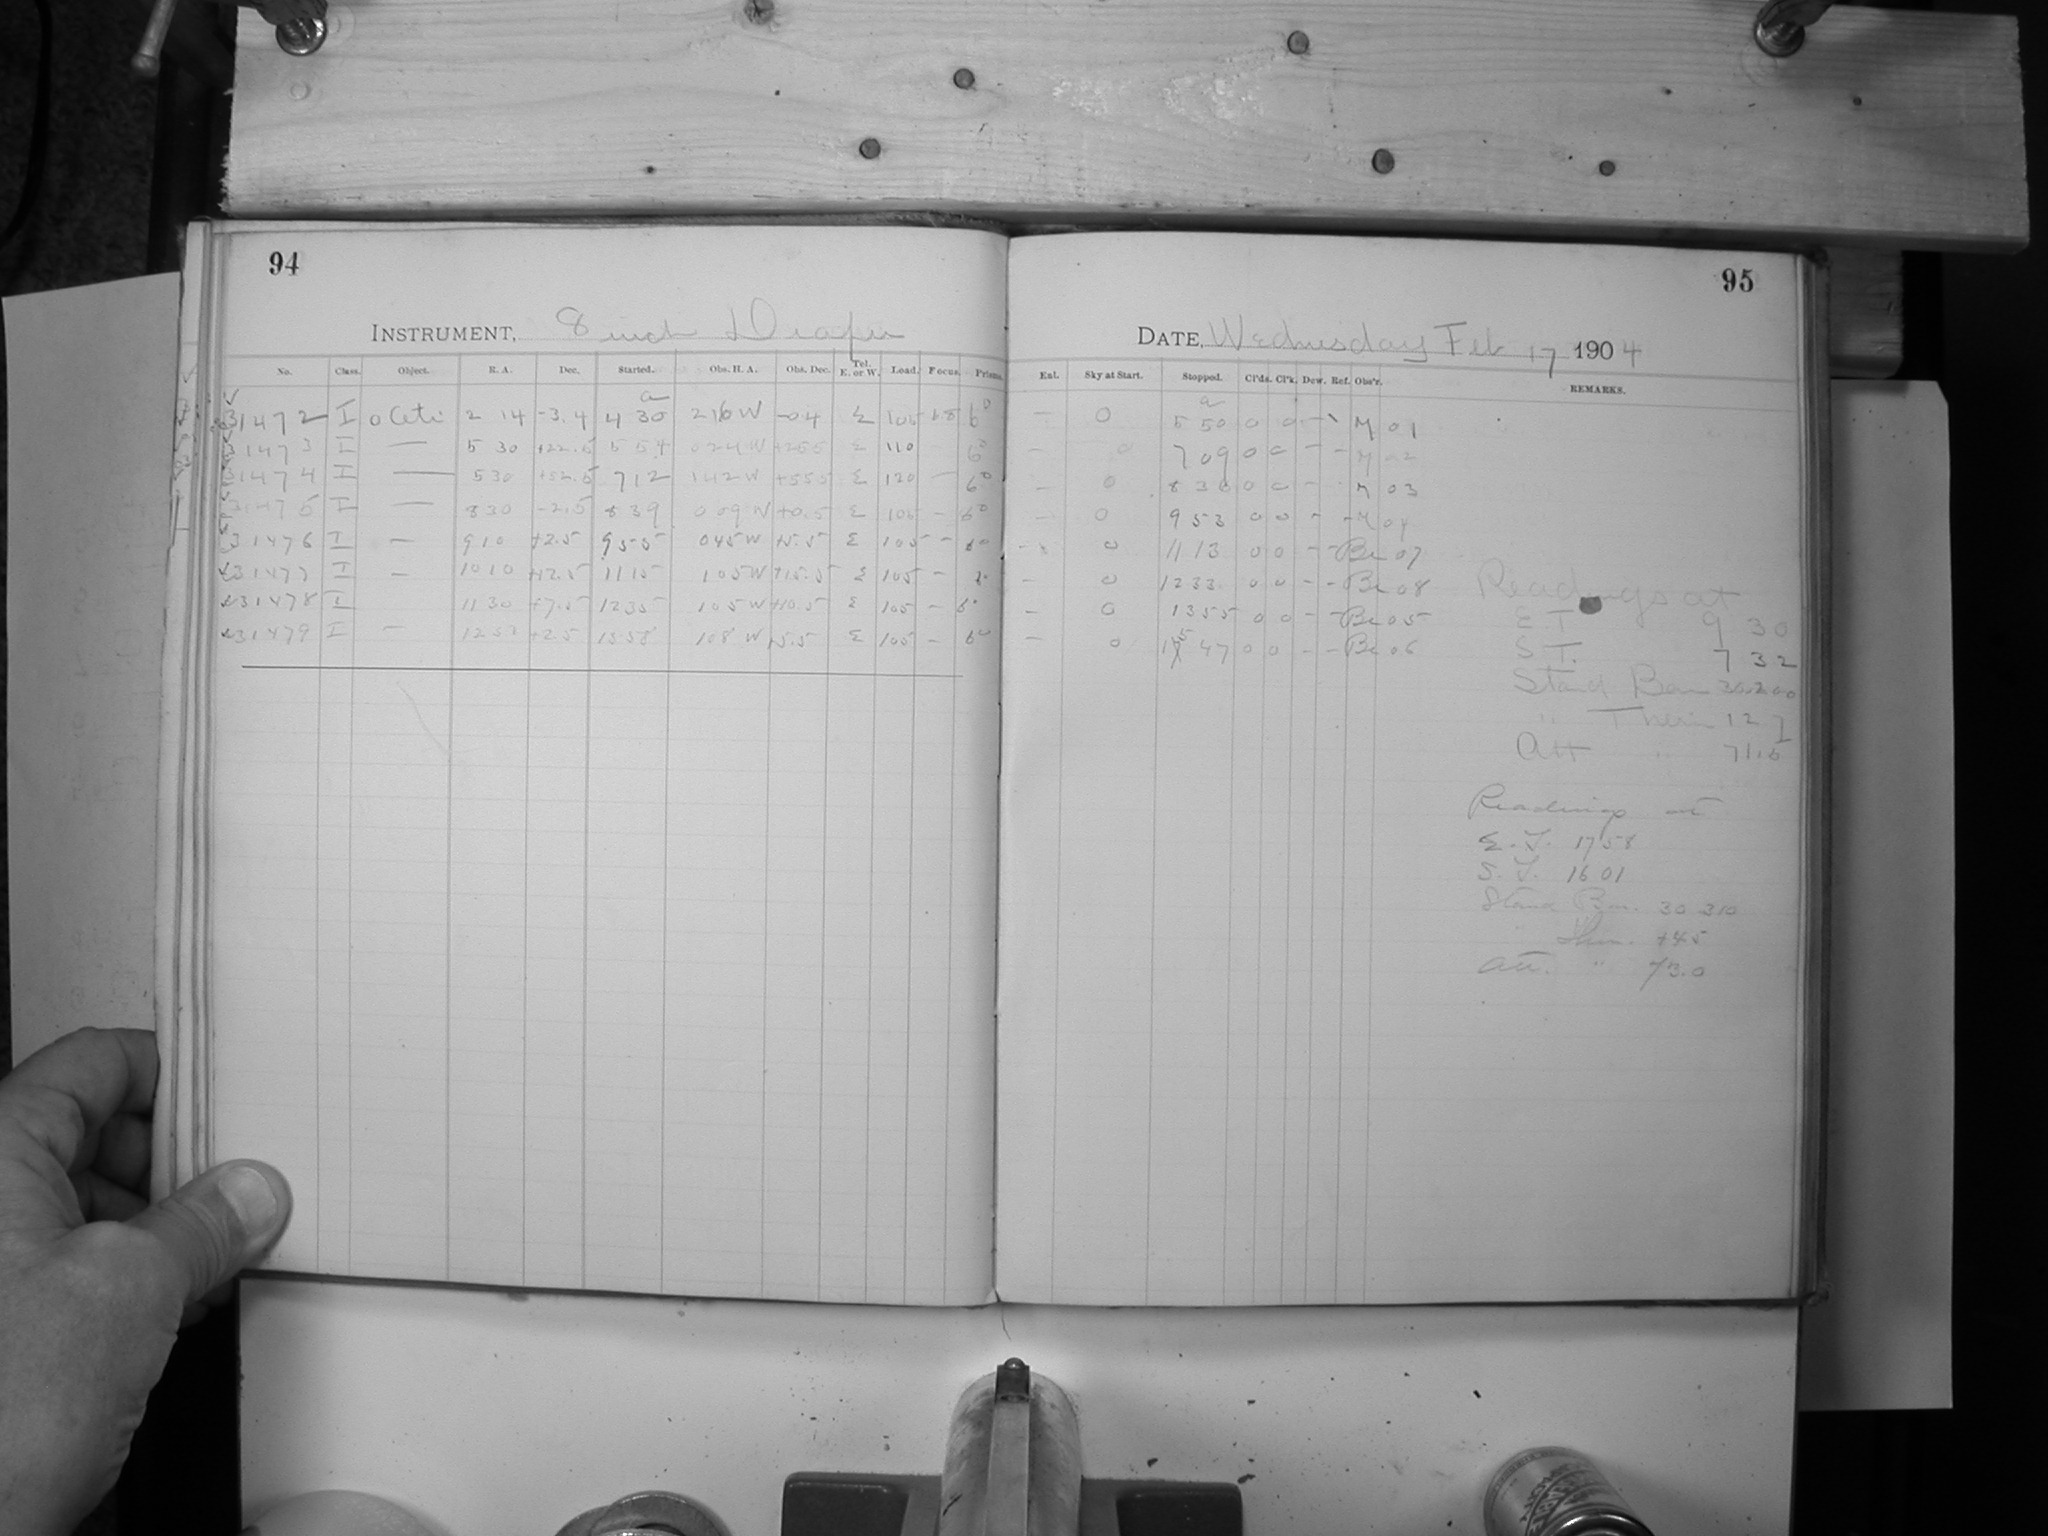 94
95
INSTRUMENT, 8 inch Draper
DATE, Wednesday Feb 17 1904
No. Class. Object. R. A. Dec. Started. Obs. H. A. Obs. Dec. Tel. E. or W. Load. Focus. Prisms.
Ent. Sky at Start. Stopped. Cl'ds. Cl'k. Dew. Ref. Obs'r. REMARKS.
a
a
31472 I o Ceti 2 14 -3.4 4 30 2 16 W -0.4 E 105 6° - 0 5 50 0 0 - 01
31473 I — 5 30 +22.5 5 54 0 24 W E 110 6° - 0 7 09 0 0 - - 02
31474 I — 5 30 +52.5 7 12 1 42 W +55.5 E 120 — 6° - 0 8 36 0 0 - 03
31475 I — 8 30 -2.5 8 39 0 09 W +0.5 E 105 - 6° - 0 9 53 0 0 - - 04
31476 I — 9 10 +2.5 9 55 0 45 W +5.5 E 105 - 6° - 0 11 13 0 0 - - Be 07
31477 I — 10 10 +12.5 11 15 1 05 W +15.5 E 105 - - 0 12 33 0 0 - - Be 08
31478 I 11 30 +7.5 12 35 1 05 W +10.5 E 105 - 6° - 0 13 55 0 0 - - Be 05
31479 I — +2.5 13 58 1 08 W +5.5 E 105 - 6° - 0 15 47 0 0 - - Be 06
Readings at
E T 9 30
S T. 7 32
Stand Bar 30.200
" Ther 12
Att " 71.5
Readings at
E. T. 17 58
S. T. 16 01
Stand Bar. 30 310
" Ther. +45
Att. " 73.0